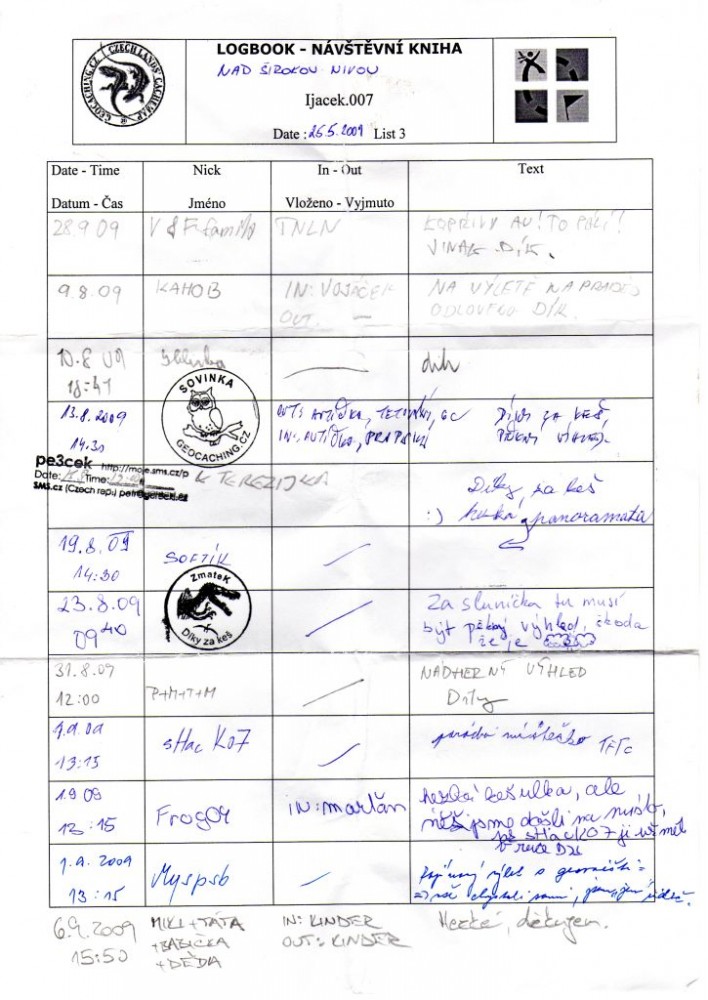 GEOCACHING.CZ
CZECH LANDS' CACHEMAP
LOGBOOK - NÁVŠTĚVNÍ KNIHA
NAD ŠIROKOU NIVOU
Ijacek.007
Date : 26.5.2009 List 3
Date - Time Nick In - Out Text
Datum - Čas Jméno Vloženo - Vyjmuto
28.9 09 V & F family TNLN KOPŘIVY AU! TO PÁLÍ!
JINAK DÍK.
9.8.09 KAHOB IN: VOJÁČEK NA VÝLETĚ NA PRADĚD
OUT. — ODLOVENO DÍK.
10.8 09 dík
18:41
SOVINKA
GEOCACHING.CZ
13.8.2009 OUT: GC DÍKY ZA KEŠ
14.30 IN: AUTÍČKO, PĚKNÝ VÝHLED.
pe3cek http://moje.sms.cz/p
Date: Time:
SMS.cz (Czech rep.)
K TEREZIJKA Díky za keš
:) panoramata
19.8.09 SOFTÍK
14:30
ZmateK
Díky za keš
23.8.09 Za sluníčka tu musí
09 40 být pěkný výhled, škoda
že je
31.8.09 P+M+T+M NÁDHERNÝ VÝHLED
12:00 Díky
1.9.09 sHac K07 místečko TFTC
13:15
1.9 09 Frogor IN: martan hezká kešulka, ale
13:15 než jsme došli na místo,
sHacK07 ji už měl
v ruce Dík
1.9.2009 Myspsb
13:15
6.9.2009 MIKI+TÁTA IN: KINDER Hezké, děkujem.
15:50 +BABIČKA OUT: KINDER
+DĚDA